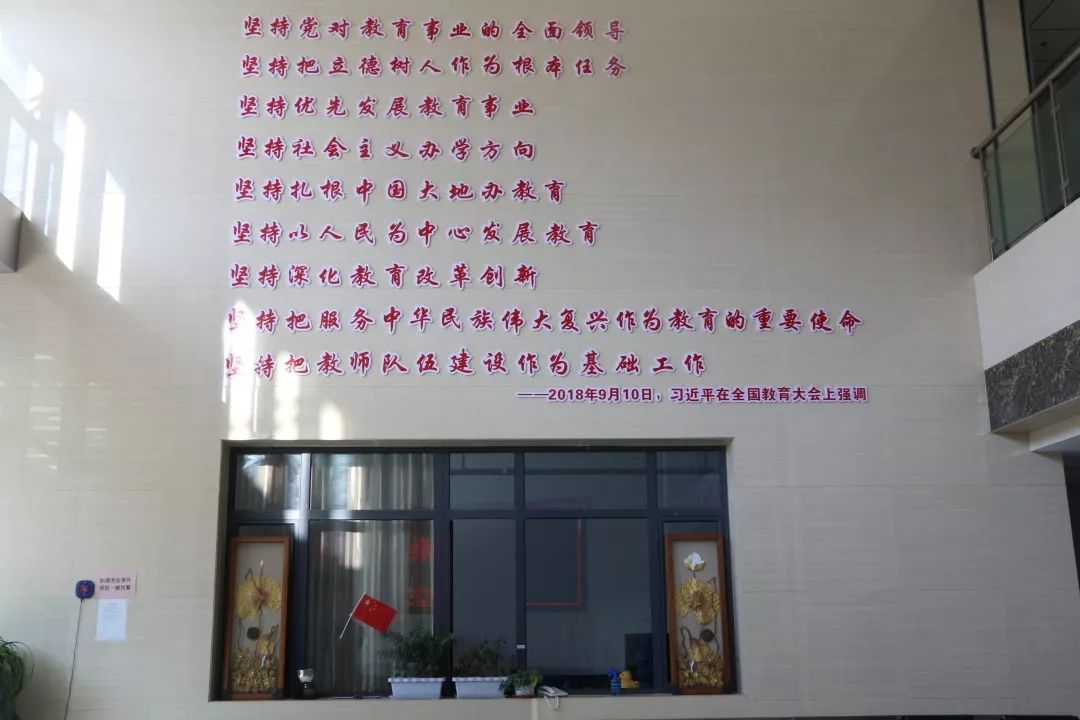 坚持党对教育事业的全面领导
坚持把立德树人作为根本任务
坚持优先发展教育事业
坚持社会主义办学方向
坚持扎根中国大地办教育
坚持以人民为中心发展教育
坚持深化教育改革创新
坚持把服务中华民族伟大复兴作为教育的重要使命
坚持把教师队伍建设作为基础工作
——2018年9月10日，习近平在全国教育大会上强调
如遇突发事件
请按一键报警